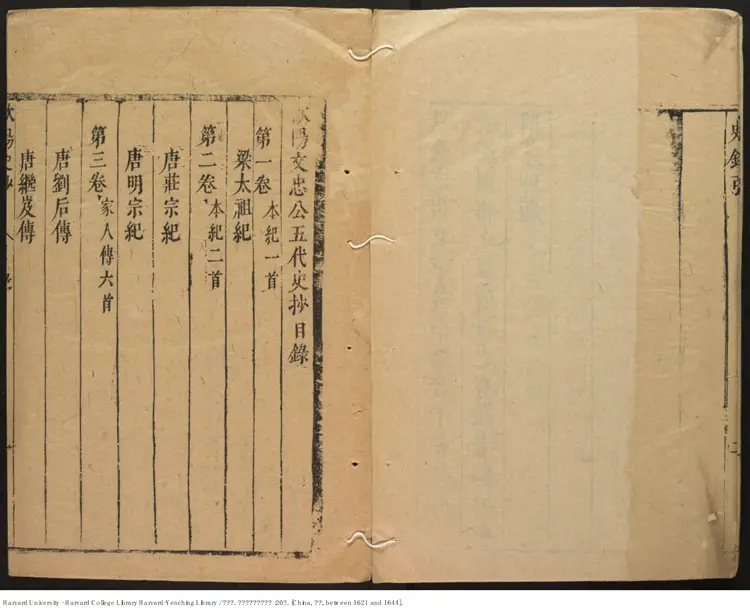 史鈔引
二
歐陽文忠公五代史抄目錄
第一卷 本紀一首
梁太祖紀
第二卷 本紀二首
唐莊宗紀
唐明宗紀
第三卷 家人傳六首
唐劉后傳
唐繼岌傳
歐陽史抄
Harvard University - Harvard College Library Harvard-Yenching Library / ???. ????????? :20?. [China, ??, between 1621 and 1644].